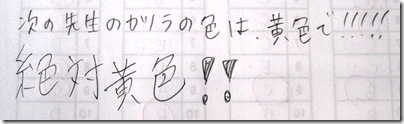 次の先生のガノラの色は、黄色で!!!!!
絶対黄色!!